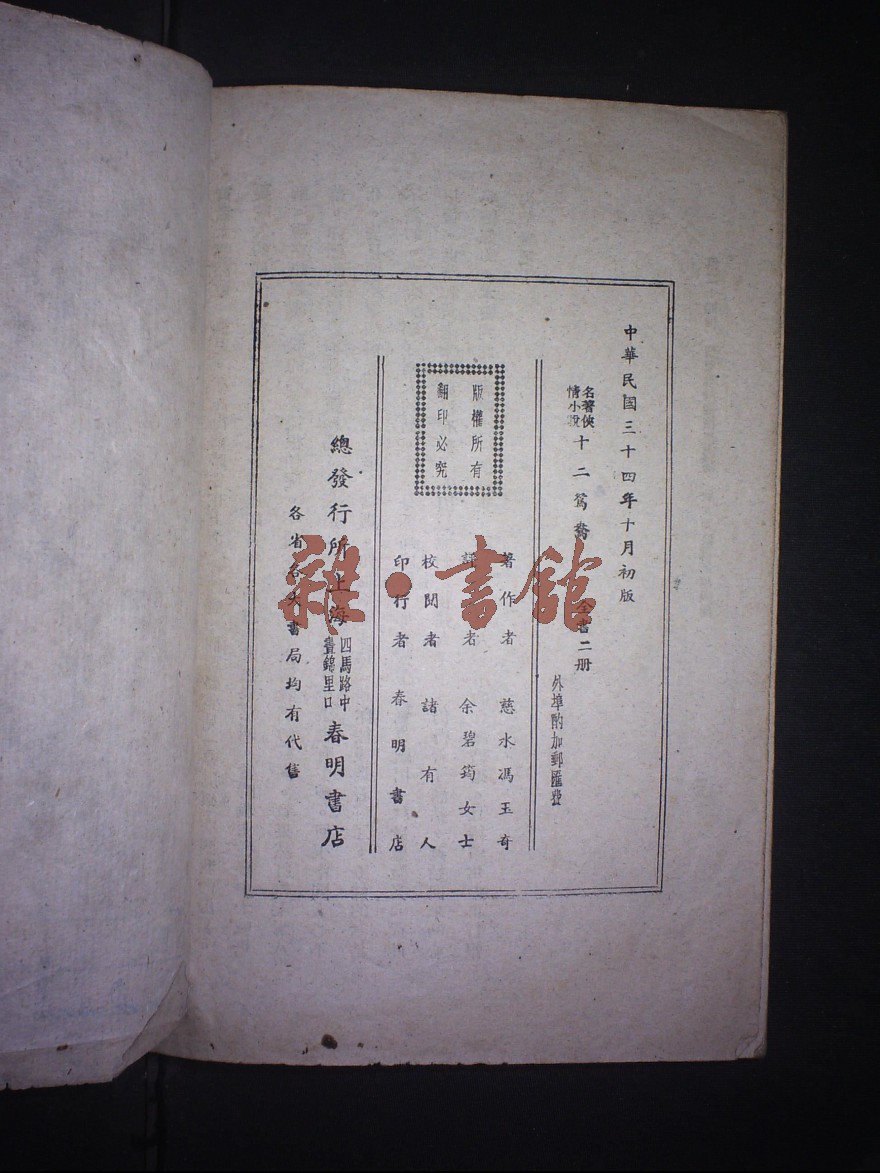 中華民國三十四年十月初版
名著俠
情小說
十二鴛鴦
全書二册
外埠酌加郵匯費
版權所有
翻印必究
著作者 慈水馮玉奇
者 余碧筠女士
校閱者 諸有人
印行者 春明書店
總發行所上海
四馬路中
晝錦里口
春明書店
各省各大書局均有代售
雜·書館